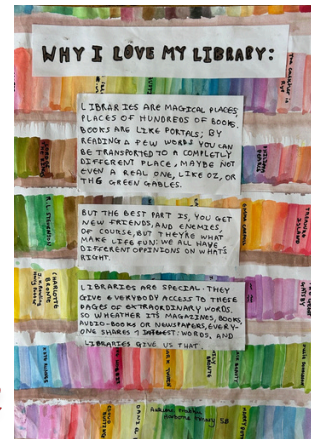 WHY I LOVE MY LIBRARY:
LIBRARIES ARE MAGICAL PLACES,
PLACES OF HUNDREDS OF BOOKS.
BOOKS ARE LIKE PORTALS; BY
READING A FEW WORDS YOU CAN
BE TRANSPORTED TO A COMPLETLY
DIFFERENT PLACE, MAYBE NOT
EVEN A REAL ONE, LIKE OZ, OR
THE GREEN GABLES.
BUT THE BEST PART IS, YOU GET
NEW FRIENDS, AND ENEMIES,
OF COURSE, BUT THEYRE WHAT
MAKE LIFE FUN: WE ALL HAVE
DIFFERENT OPINIONS ON WHATS
RIGHT.
LIBRARIES ARE SPECIAL: THEY
GIVE EVERYBODY ACCESS TO THESE
PAGES OF EXTRAORDINARY WORDS.
SO WHEATHER ITS MAGAZINES, BOOKS,
AUDIO-BOOKS OR NEWSPAPERS, EVERY-
ONE SHARES 1 INTEREST: WORDS, AND
LIBRARIES GIVE US THAT
R.L. STEVENSON
CHARLOTTE
BRONTE
GATSBY